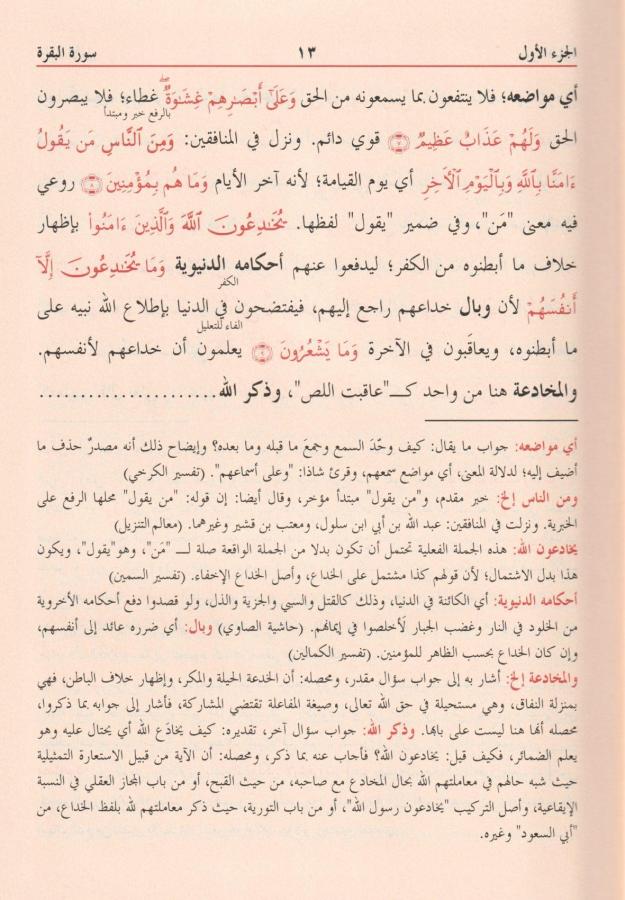 الجزء الأول ١٣ سورة البقرة
أي مواضعه؛ فلا ينتفعون بما يسمعونه من الحق وَعَلَىٰٓ أَبْصَـٰرِهِمْ غِشَـٰوَةٌۖ غطاء؛ فلا يبصرون
بالرفع خبر ومبتدأ
الحق وَلَهُمْ عَذَابٌ عَظِيمٌ ﴿٧﴾ قوي دائم. ونزل في المنافقين: وَمِنَ ٱلنَّاسِ مَن يَقُولُ
ءَامَنَّا بِٱللَّهِ وَبِٱلْيَوْمِ ٱلْأَخِرِ أي يوم القيامة؛ لأنه آخر الأيام وَمَا هُم بِمُؤْمِنِينَ ﴿٨﴾ روعي
فيه معنى "مَن"، وفي ضمير "يقول" لفظها. يُخَـٰدِعُونَ ٱللَّهَ وَٱلَّذِينَ ءَامَنُوا۟ بإظهار
خلاف ما أبطنوه من الكفر؛ ليدفعوا عنهم أحكامه الدنيوية وَمَا يُخَـٰدِعُونَ إِلَّآ
الكفر
أَنفُسَهُمْ لأن وبال خداعهم راجع إليهم، فيفتضحون في الدنيا بإطلاع الله نبيه على
الفاء للتعليل
ما أبطنوه، ويعاقَبون في الآخرة وَمَا يَشْعُرُونَ ﴿٩﴾ يعلمون أن خداعهم لأنفسهم.
والمخادعة هنا من واحد كـ"عاقبت اللص"، وذكر الله......................
أي مواضعه: جواب ما يقال: كيف وحّدَ السمع وجمعَ ما قبله وما بعده؟ وإيضاح ذلك أنه مصدرٌ حذف ما
أضيف إليه؛ لدلالة المعنى، أي مواضع سمعهم، وقرئ شاذا: "وعلى أسماعهم". (تفسير الكرخي)
ومن الناس إلخ: خبر مقدم، و"من يقول" مبتدأ مؤخر، وقال أيضا: إن قوله: "من يقول" محلها الرفع على
الخبرية. ونزلت في المنافقين: عبد الله بن أبي ابن سلول، ومعتب بن قشير وغيرهما. (معالم التنزيل)
يخادعون الله: هذه الجملة الفعلية تحتمل أن تكون بدلا من الجملة الواقعة صلة لـ "مَن"، وهو"يقول"، ويكون
هذا بدل الاشتمال؛ لأن قولهم كذا مشتمل على الخداع، وأصل الخداع الإخفاء. (تفسير السمين)
أحكامه الدنيوية: أي الكائنة في الدنيا، وذلك كالقتل والسبي والجزية والذل، ولو قصدوا دفع أحكامه الأخروية
من الخلود في النار وغضب الجبار لأخلصوا في إيمانهم. (حاشية الصاوي) وبال: أي ضرره عائد إلى أنفسهم،
وإن كان الخداع بحسب الظاهر للمؤمنين. (تفسير الكمالين)
والمخادعة إلخ: أشار به إلى جواب سؤال مقدر، ومحصله: أن الخدعة الحيلة والمكر، وإظهار خلاف الباطن، فهي
بمنزلة النفاق، وهي مستحيلة في حق الله تعالى، وصيغة المفاعلة تقتضي المشاركة، فأشار إلى جوابه بما ذكروا،
محصله أنها هنا ليست على بابها. وذكر الله: جواب سؤال آخر، تقديره: كيف يخادَع الله أي يحتال عليه وهو
يعلم الضمائر، فكيف قيل: يخادعون الله؟ فأجاب عنه بما ذكر، ومحصله: أن الآية من قبيل الاستعارة التمثيلية
حيث شبه حالهم في معاملتهم الله بحال المخادع مع صاحبه، من حيث القبح، أو من باب المجاز العقلي في النسبة
الإيقاعية، وأصل التركيب "يخادعون رسول الله"، أو من باب التورية، حيث ذكر معاملتهم لله بلفظ الخداع، من
"أبي السعود" وغيره.